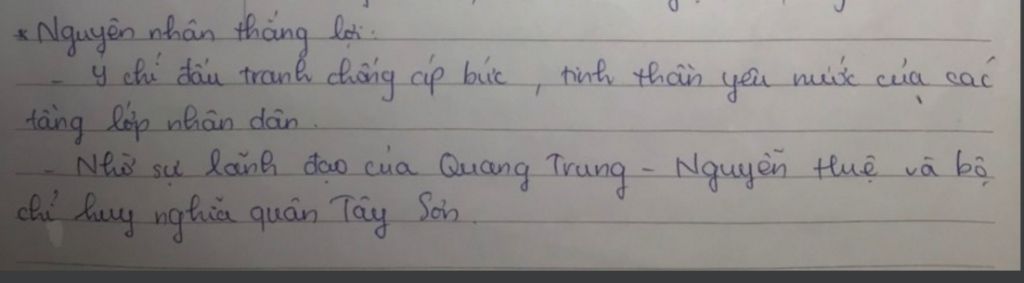 * Nguyên nhân thắng lợi:
- Ý chí đấu tranh chống áp bức, tinh thần yêu nước của các
tầng lớp nhân dân.
- Nhờ sự lãnh đạo của Quang Trung - Nguyễn Huệ và bộ
chỉ huy nghĩa quân Tây Sơn.